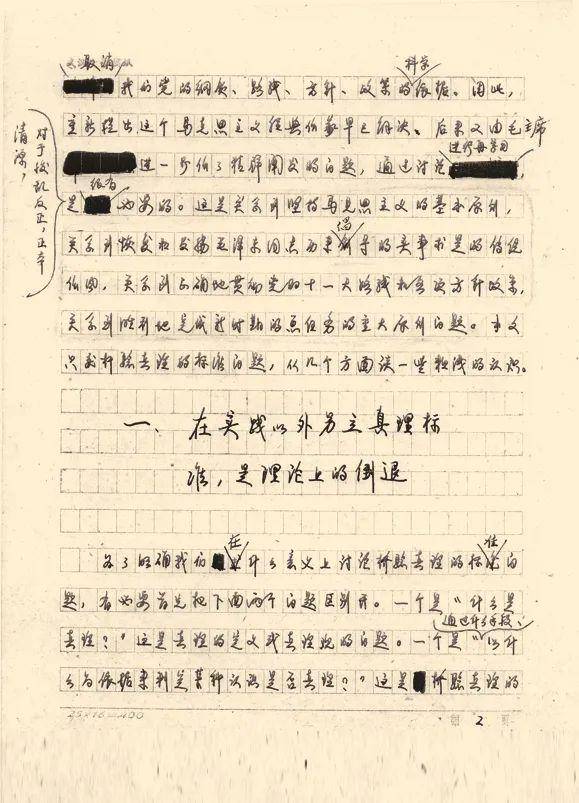 取消
科学
我们党的纲领、路线、方针、政策的依据。因此，
重新提出这个马克思主义经典作家早已解决、后来又由毛主席
进行再学习
进一步作了精辟阐发的问题，通过讨论
很有
是必要的。这是关系到坚持马克思主义的基本原则，
倡
关系到恢复和发扬毛泽东同志历来导的实事求是的传统
作风，关系到正确地贯彻党的十一大路线和各项方针政策，
关系到胜利地完成新时期的总任务的重大原则问题。本文
只就检验真理的标准问题，从几个方面谈一些粗浅的认识。
对于拨乱反正，正本
清源，
一、在实践以外另立真理标
准，是理论上的倒退
在
准
为了明确我们什么意义上讨论检验真理的标问
题，有必要首先把下面两个问题区别开。一个是“什么是
通过什么手段、
真理？”这是真理的定义或真理观的问题。一个是“以什
么为依据来判定某种认识是否真理？”这是检验真理的
25×16=400
第 2 页